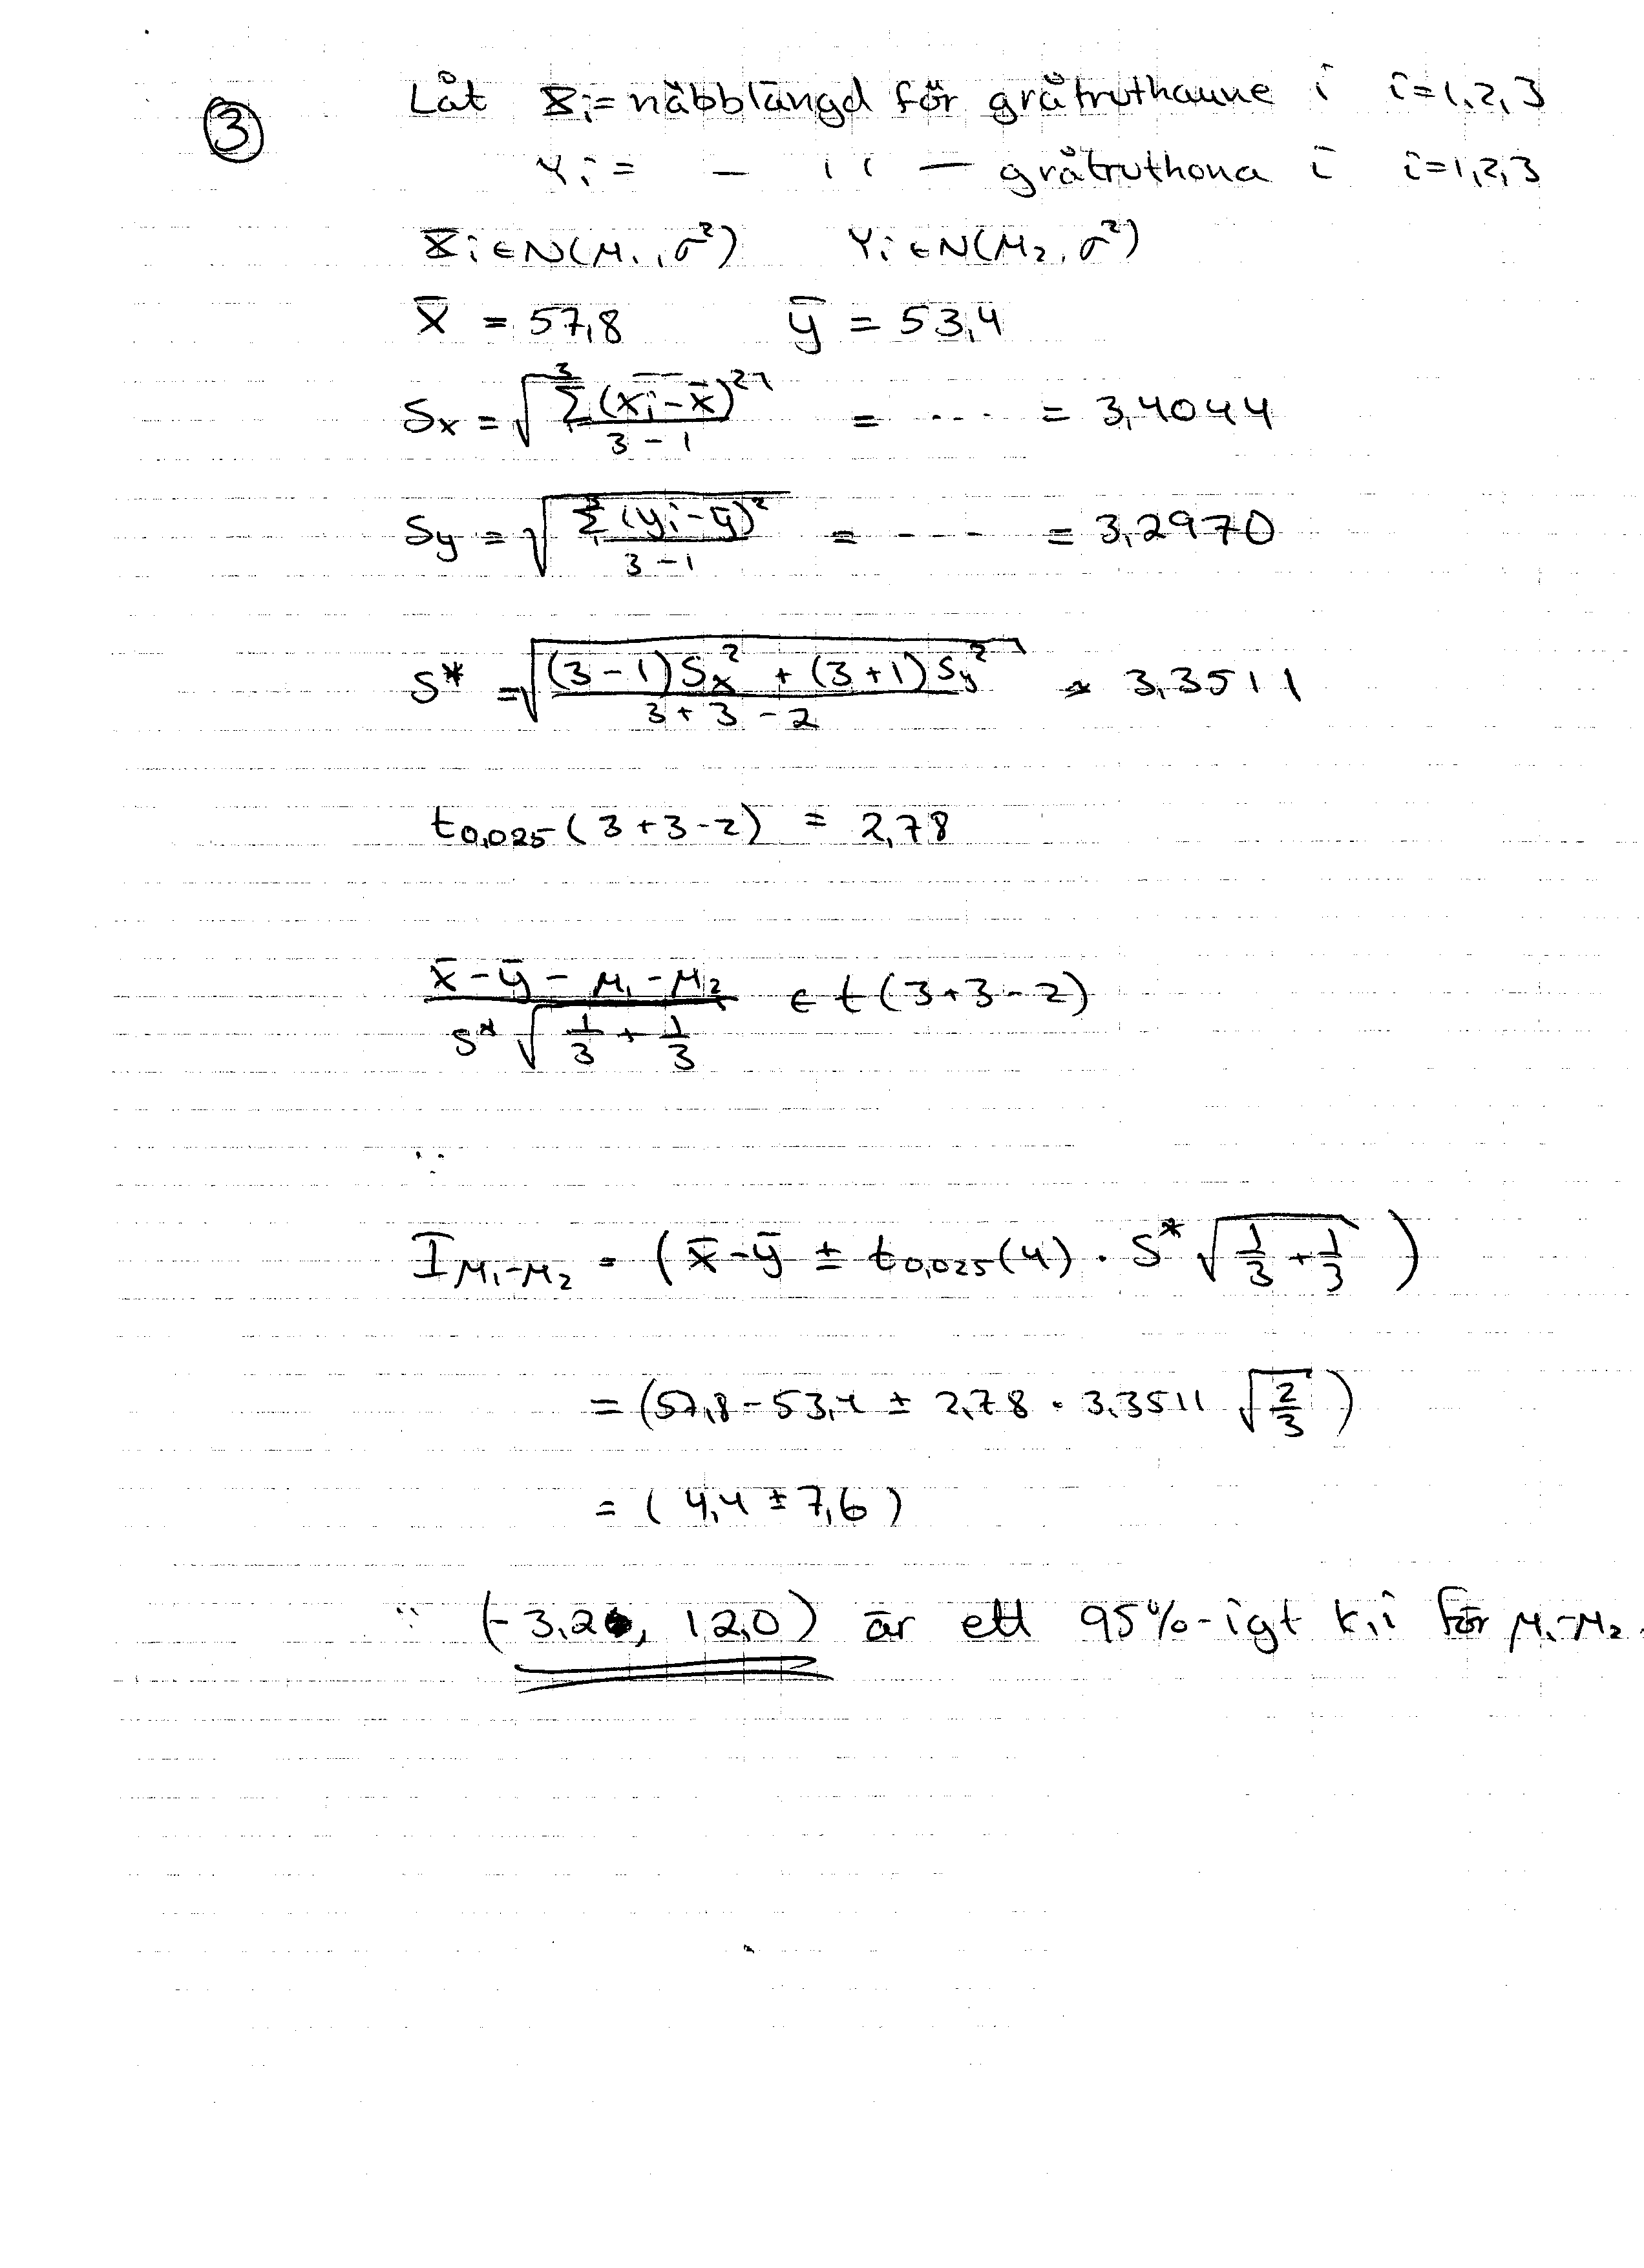 ③ Låt X̄i = näbblängd för gråtruthanne i i=1,2,3
Yi = – 11 – gråtruthona i i=1,2,3
Xi ∈ N(μ1, σ²) Yi ∈ N(μ2, σ²)
x̄ = 57,8 ȳ = 53,4
Sx = √(Σ₁³(xi-x̄)²/(3-1)) = ---- = 3,4044
Sy = √(Σ₁³(yi-ȳ)²/(3-1)) = ---- = 3,2970
S* = √(((3-1)Sx² + (3+1)Sy²)/(3+3-2)) ≈ 3,3511
t0,025(3+3-2) = 2,78
(x̄-ȳ - μ1-μ2)/(S*√(1/3 + 1/3)) ∈ t(3+3-2)
∵
Iμ1-μ2 = (x̄-ȳ ± t0,025(4) · S*√(1/3 + 1/3))
= (57,8-53,4 ± 2,78 · 3,3511 √(2/3))
= (4,4 ± 7,6)
∵ (-3,2, 12,0) är ett 95%-igt k.i för μ1-μ2.